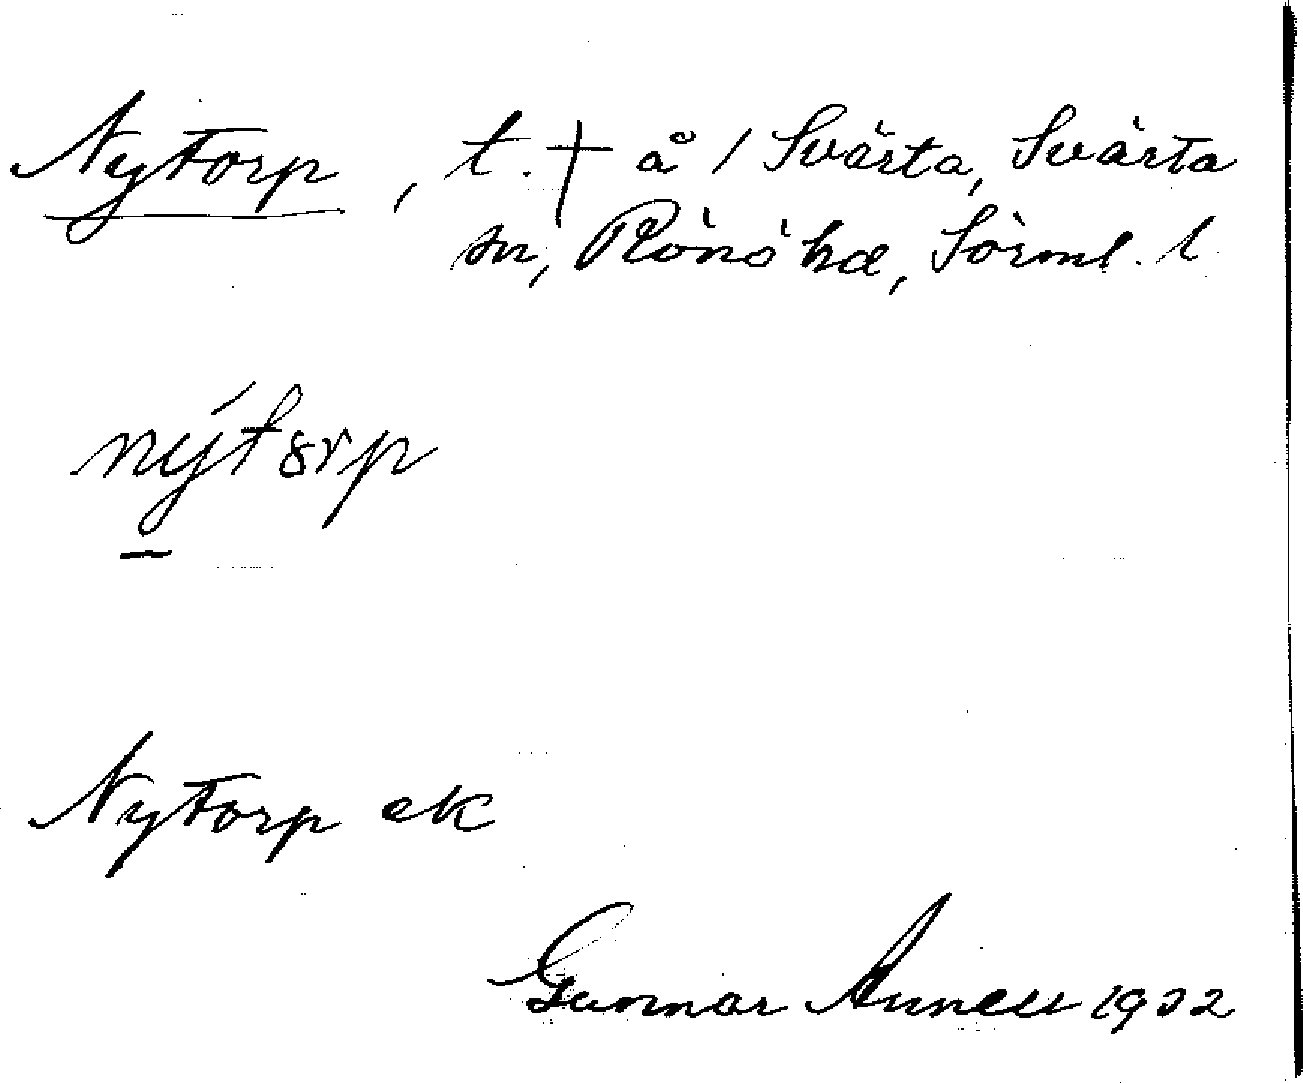 Nytorp, t. † å / Svärta, Svärta
sn, Rönö hd, Sörml. l
nýtorp
Nytorp ek
Gunnar Annell 1932